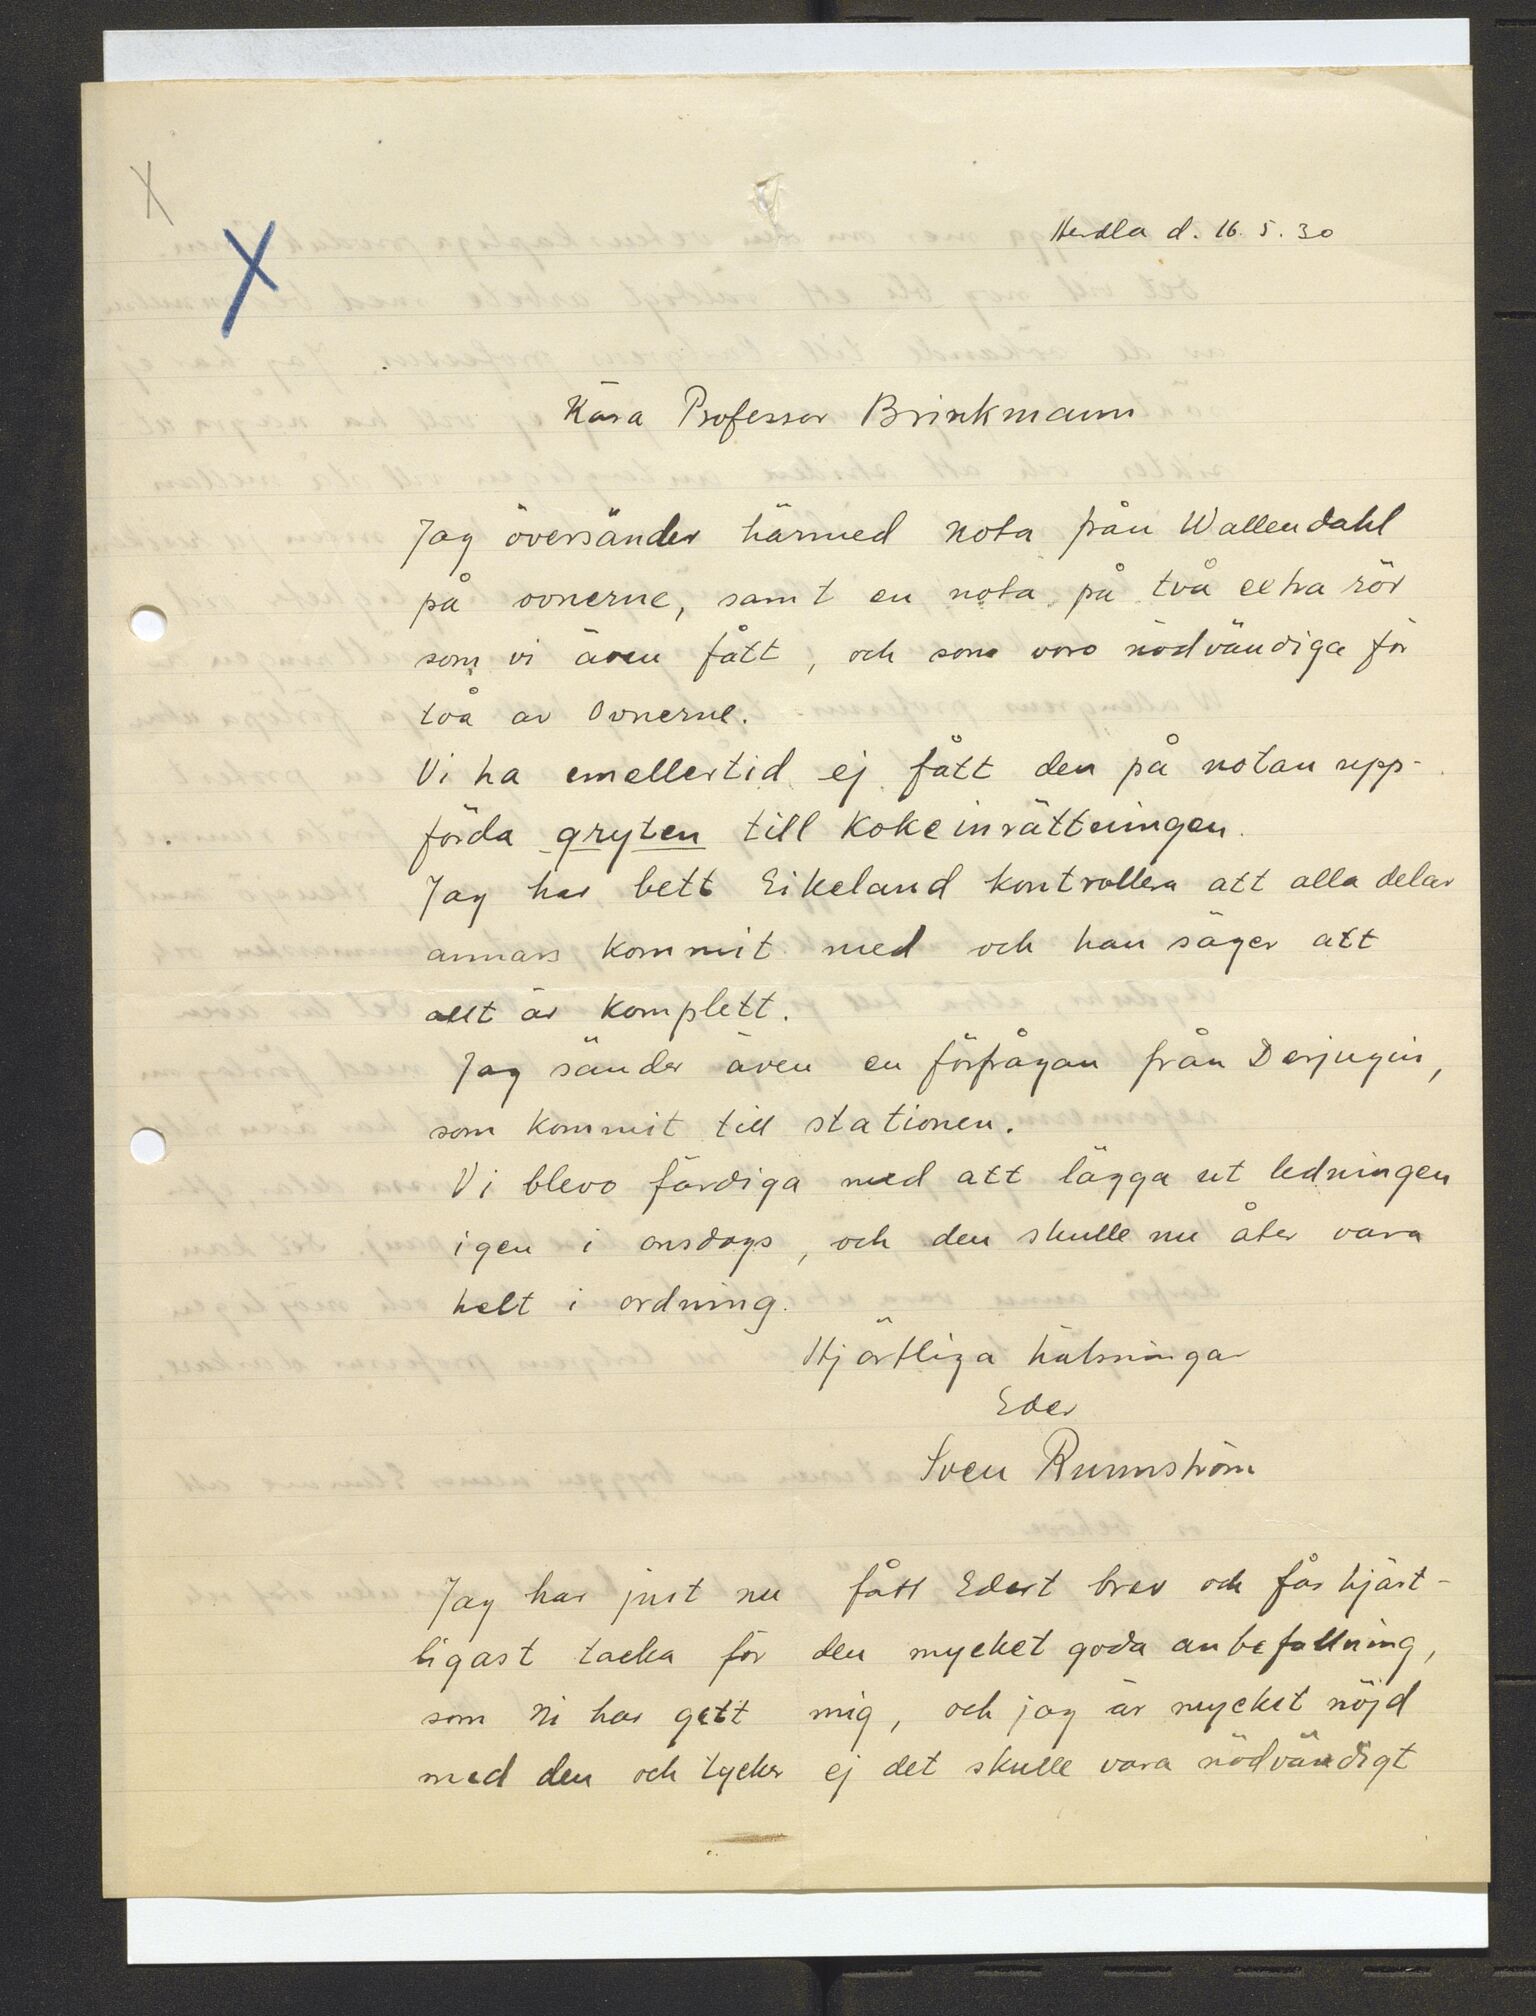 Herdla d. 16. 5. 30
Kära Professor Brinkmann
Jag översänder härmed nota från Wallendahl
på ovnerne, samt en nota på två extra rör
som vi även fått, och som voro nödvändiga för
två av Ovnerne.
Vi ha emellertid ej fått den på notan upp-
förda gryten till kokeinrättningen.
Jag har bett Eikeland kontrollera att alla delar
annars kommit med och han säger att
allt är komplett.
Jag sänder även en förfrågan från Derjugin,
som kommit till stationen.
Vi blevo färdiga med att lägga ut ledningen
igen i onsdags, och den skulle nu åter vara
helt i ordning.
Hjärtliga hälsningar
Eder
Sven Runnström
Jag har just nu fått Edert brev och får hjärt-
ligast tacka för den mycket goda anbefallning,
som Ni har gett mig, och jag är mycket nöjd
med den och tycker ej det skulle vara nödvändigt